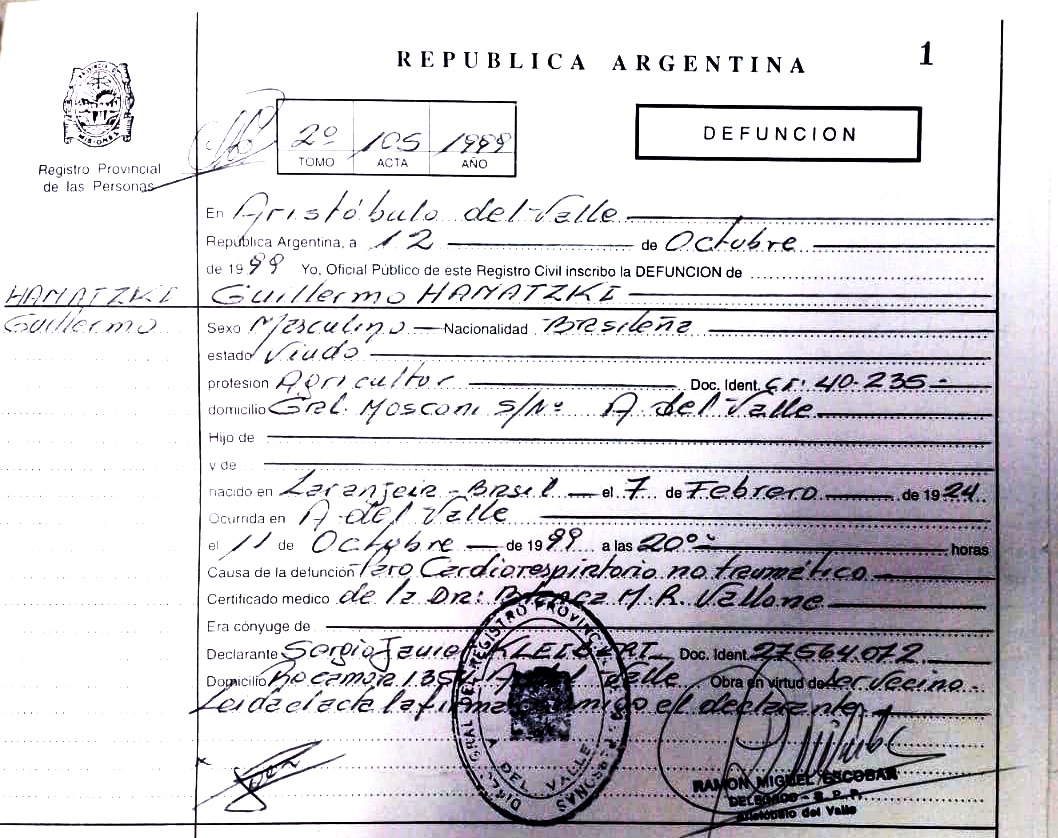 REPUBLICA ARGENTINA
1
PROVINCIA DE MISIONES
Registro Provincial
de las Personas
2º 105 1999
TOMO ACTA AÑO
DEFUNCION
En Aristóbulo del Valle
República Argentina, a 12 de Octubre
de 1999 Yo, Oficial Público de este Registro Civil inscribo la DEFUNCION de
HANATZKI
Guillermo
Guillermo HANATZKI
Sexo Masculino Nacionalidad Brasileña
estado Viudo
profesión Agricultor Doc. Ident. CI: 40.235-
domicilio Gral. Mosconi S/Nº A del Valle
Hijo de
y de
nacido en Laranjeira - Brasil el 7 de Febrero de 1924
Ocurrida en A del Valle
el 11 de Octubre de 1999 a las 20º horas
Causa de la defunción Paro Cardiorespiratorio no traumático
Certificado medico de la Dra: Blanca M.R. Vallone
Era cónyuge de
Declarante Sergio Javier Doc. Ident. 27564.072
Domicilio Rocamora Valle Obra en virtud de ser vecino-
Leida el acta la firma conmigo el declarante
DIR. GRAL. DEL REGISTRO PROVINCIAL DE LAS PERSONAS
A. DEL VALLE
RAMON MIGUEL ESCOBAR
DELEGADO - R. P. P.
Aristóbulo del Valle